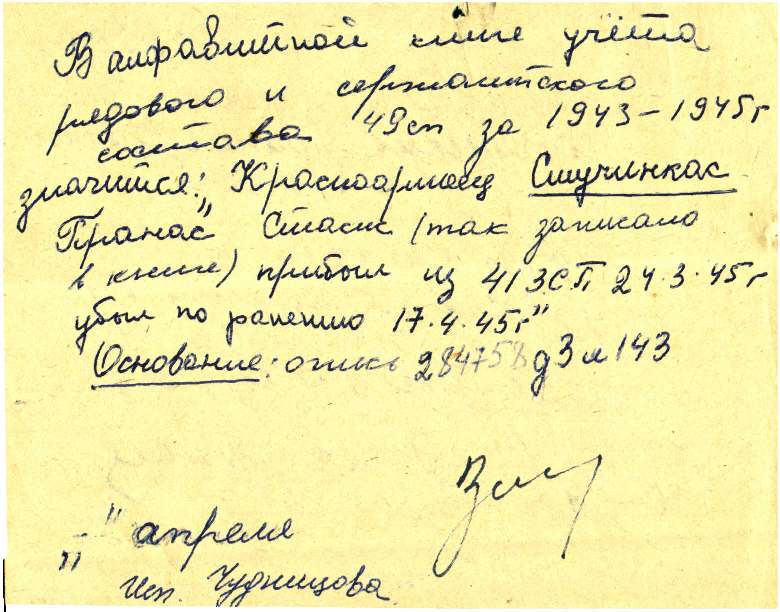 В алфавитной книге учёта
рядового и сержантского
состава 49сп за 1943-1945г
значится: Красноармеец Стучинкас
Пранас" Стасис (так записано
в книге) прибыл из 413СП 24.3.45г
убыл по ранению 17.4.45г"
Основание: опись 284758 д3 л143
"-" апреля
Исп. Чудницова